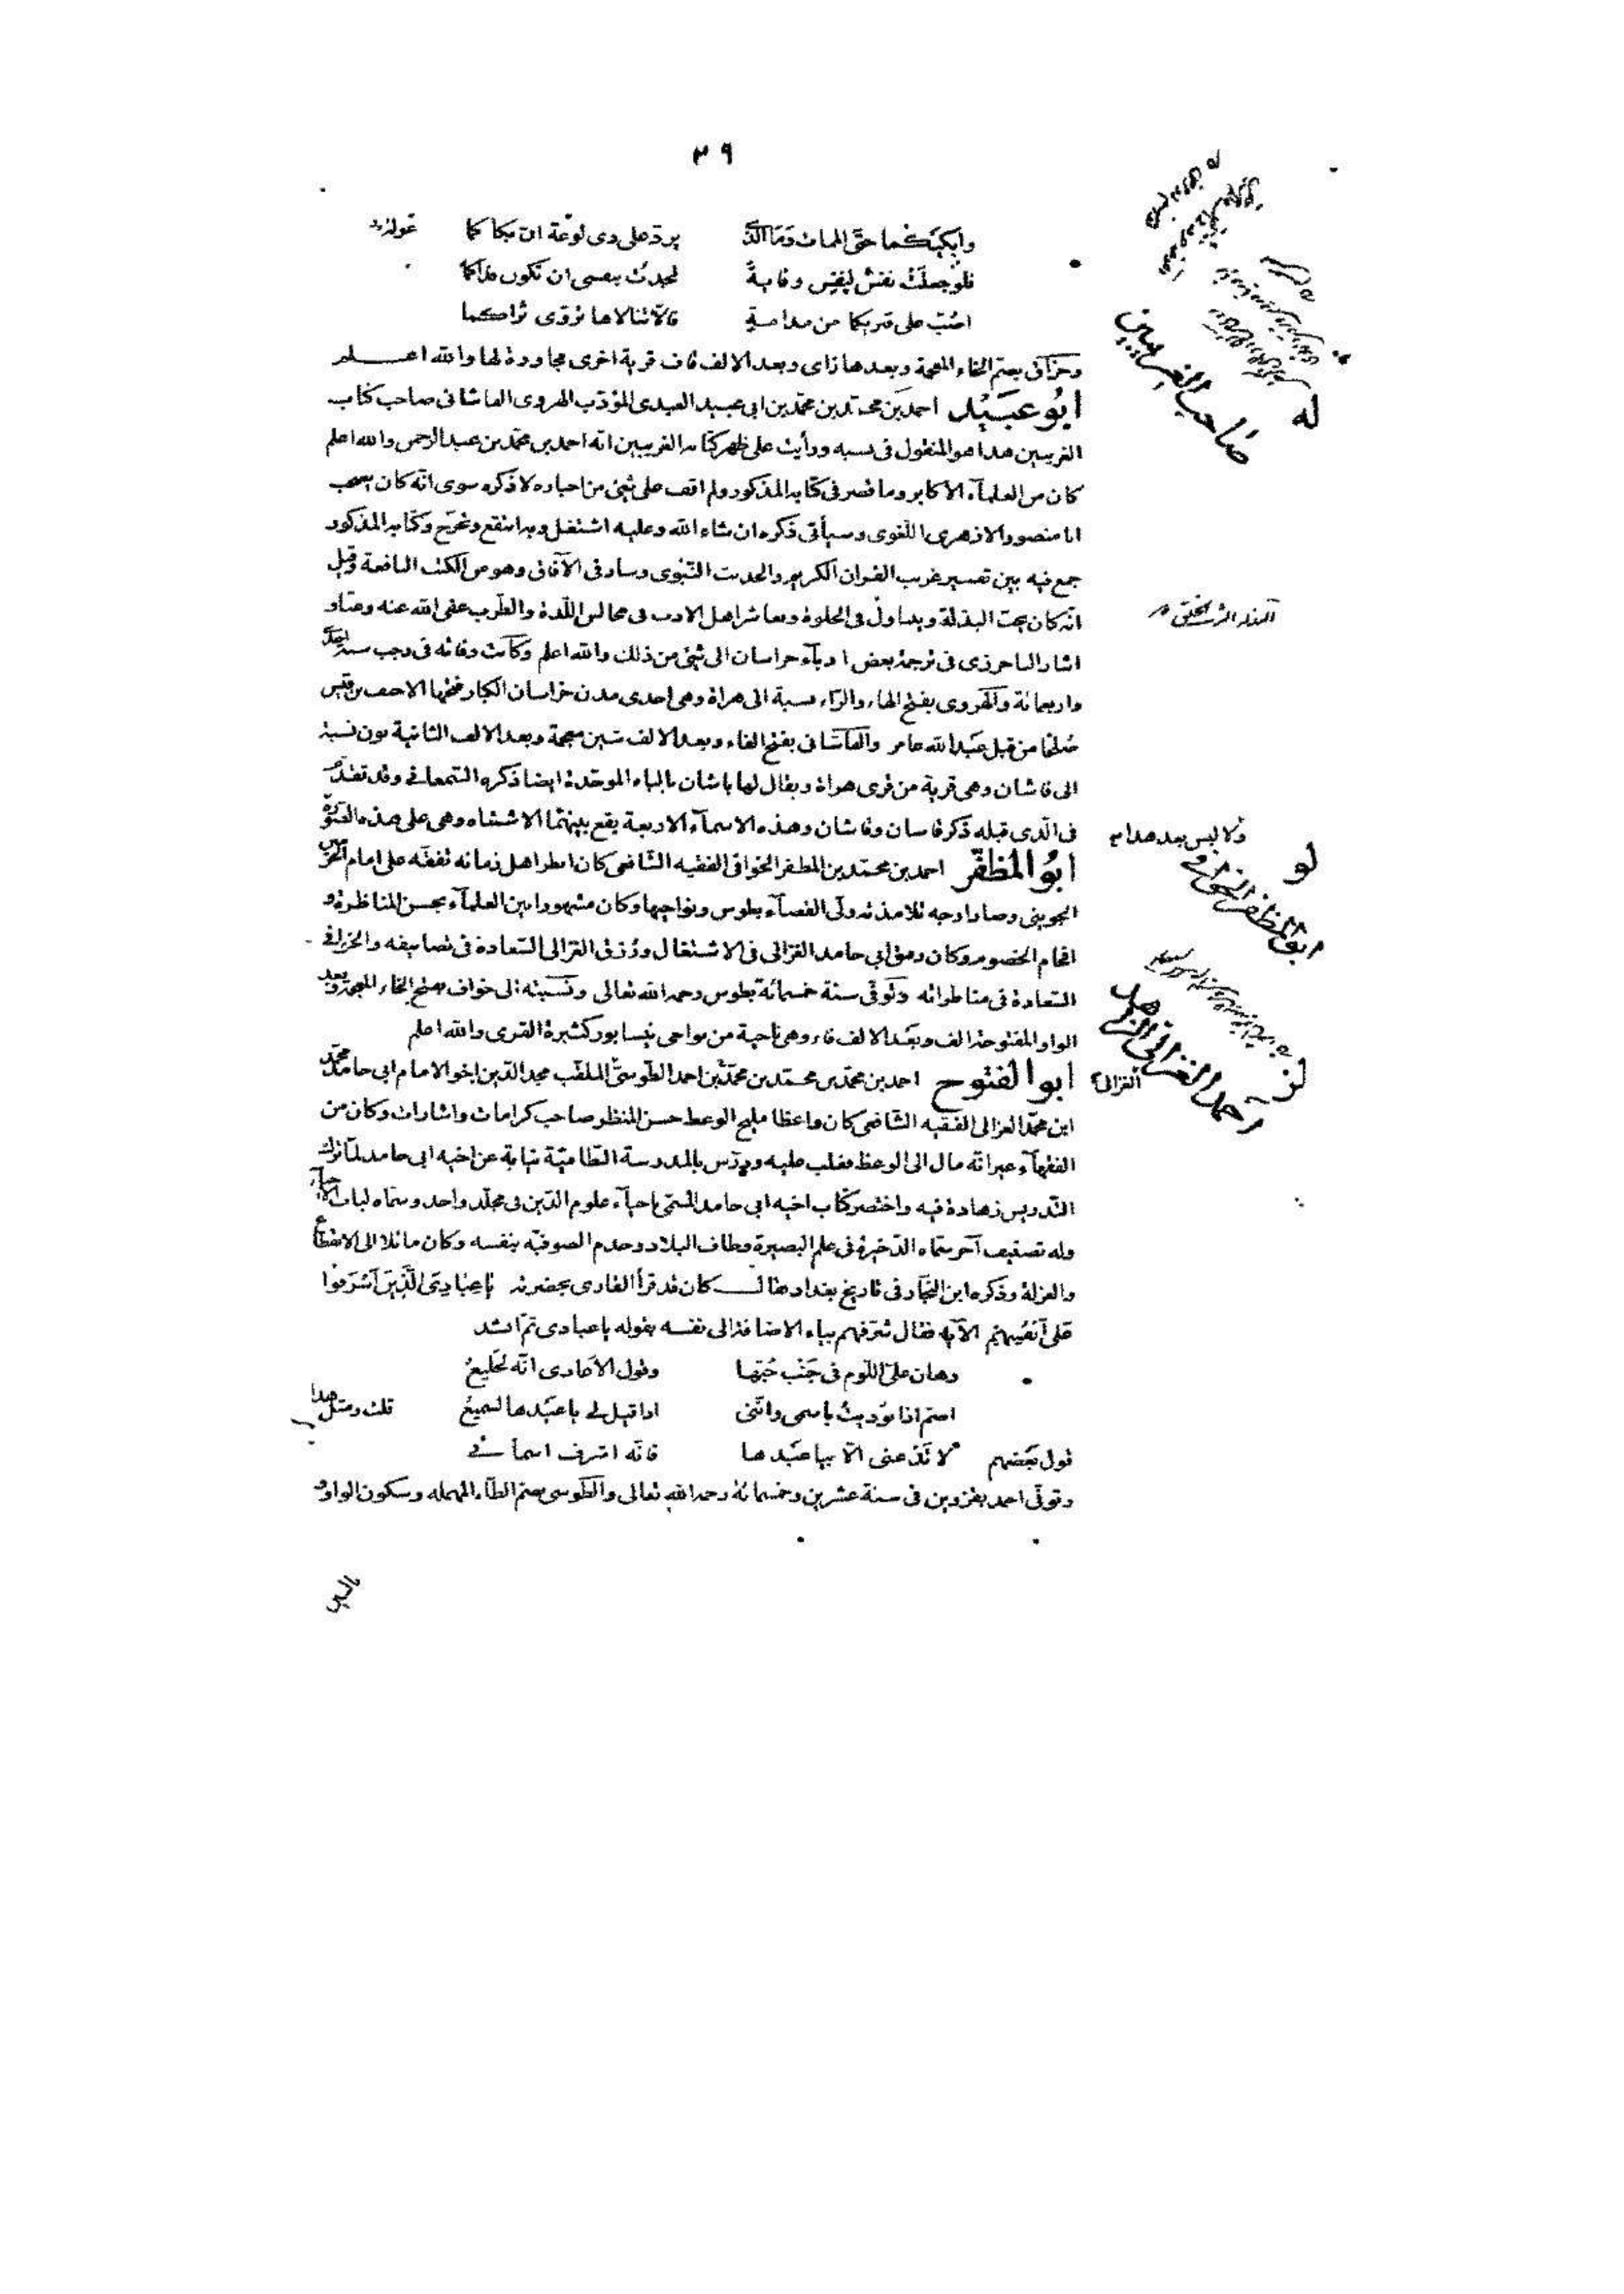 ٣٩
وابكيكما حتى الممات وما الذى يرد على ذى لوعة ان بكاكما
فلو جعلت نفس لنفس وقاية لجدت بنفسى ان تكون فداكما
اصب على قبريكما من مدامة فالا تنالاها تروى ثراكما
وخزاق بضم الخاء المعجمة وبعدها زاى وبعد الالف قاف قرية اخرى مجاورة لها والله اعلم
ابو عبيد احمد بن محمد بن محمد بن ابى عبيد العبدى المؤدب الهروى الفاشانى صاحب كتاب
الغريبين هذا هو المنقول فى نسبه ورأيت على ظهر كتاب الغريبين انه احمد بن محمد بن عبد الرحمن والله اعلم
كان من العلماء الاكابر وما قصر فى كتابه المذكور ولم اقف على شئ من اخباره لاذكره سوى انه كان يصحب
ابا منصور الازهرى اللغوى وسيأتى ذكره ان شاء الله وعليه اشتغل وبه انتفع وتخرج وكتابه المذكور
جمع فيه بين تفسير غريب القران الكريم والحديث النبوى وسار فى الآفاق وهو من الكتب النافعة وقيل
انه كان يحب البذلة ويتناول فى الخلوة ويعاشر اهل الادب فى مجالس اللذة والطرب عفى الله عنه وعنا و
اشار الباخرزى فى ترجمة بعض ادباء خراسان الى شئ من ذلك والله اعلم وكانت وفاته فى رجب سنة احدى
واربعمائة والهروى بفتح الهاء والراء نسبة الى هراة وهى احدى مدن خراسان الكبار فتحها الاحنف بن قيس
صلحا من قبل عبد الله عامر والفاشانى بفتح الفاء وبعد الالف شين معجمة وبعد الالف الثانية نون نسبة
الى فاشان وهى قرية من قرى هراة ويقال لها باشان بالباء الموحدة ايضا ذكره السمعانى وقد تقدم
فى الذى قبله ذكر فاسان وفاشان وهذه الاسماء الاربعة يقع بينهما الاشتباه وهى على هذه الصورة
ولا لبس بعد هذا
ابو المظفر احمد بن محمد بن المظفر الخوافى الفقيه الشافعى كان انظر اهل زمانه تفقه على امام الحرمين
الجوينى وصار اوجه تلامذته وولى القضاء بطوس ونواحيها وكان مشهورا بين العلماء بحسن المناظرة و
افحام الخصوم وكان رفيق ابى حامد الغزالى فى الاشتغال ورزق الغزالى السعادة فى تصانيفه والخوافى
السعادة فى مناظراته وتوفى سنة خمسمائة بطوس رحمه الله تعالى ونسبته الى خواف بفتح الخاء المعجمة وبعد
الواو المفتوحة الف وبعد الالف فاء وهى ناحية من نواحى نيسابور كثيرة القرى والله اعلم
ابو الفتوح احمد بن محمد بن محمد بن محمد بن احمد الطوسى الملقب مجد الدين اخو الامام ابى حامد محمد
الغزالى
ابن محمد الغزالى الفقيه الشافعى كان واعظا مليح الوعظ حسن المنظر صاحب كرامات واشارات وكان من
الفقهاء غير انه مال الى الوعظ فغلب عليه ودرس بالمدرسة النظامية نيابة عن اخيه ابى حامد لما ترك
التدريس زهادة فيه واختصر كتاب اخيه ابى حامد المسمى باحياء علوم الدين فى مجلد واحد وسماه لباب الاحياء
وله تصنيف آخر سماه الذخيرة فى علم البصيرة وطاف البلاد وخدم الصوفية بنفسه وكان مائلا الى الانقطاع
والعزلة وذكره ابن النجار فى تاريخ بغداد فقال كان قد قرأ القارى بحضرته يا عبادى الذين اسرفوا
على انفسهم الآية فقال شرفهم بياء الاضافة الى نفسه بقوله يا عبادى ثم انشد
وهان على اللوم فى جنب حبها وقول الاعادى انه لخليع
اصم اذا نوديت باسمى واننى اذا قيل لى يا عبدها لسميع قلت ومثل هذا
قول بعضهم لا تدعنى الا بيا عبدها فانه اشرف اسمائى
وتوفى احمد بقزوين فى سنة عشرين وخمسمائة رحمه الله تعالى والطوسى بضم الطاء المهمله وسكون الواو
له
صاحب الغريبين
لو
ابو المظفر الخوافى
لز